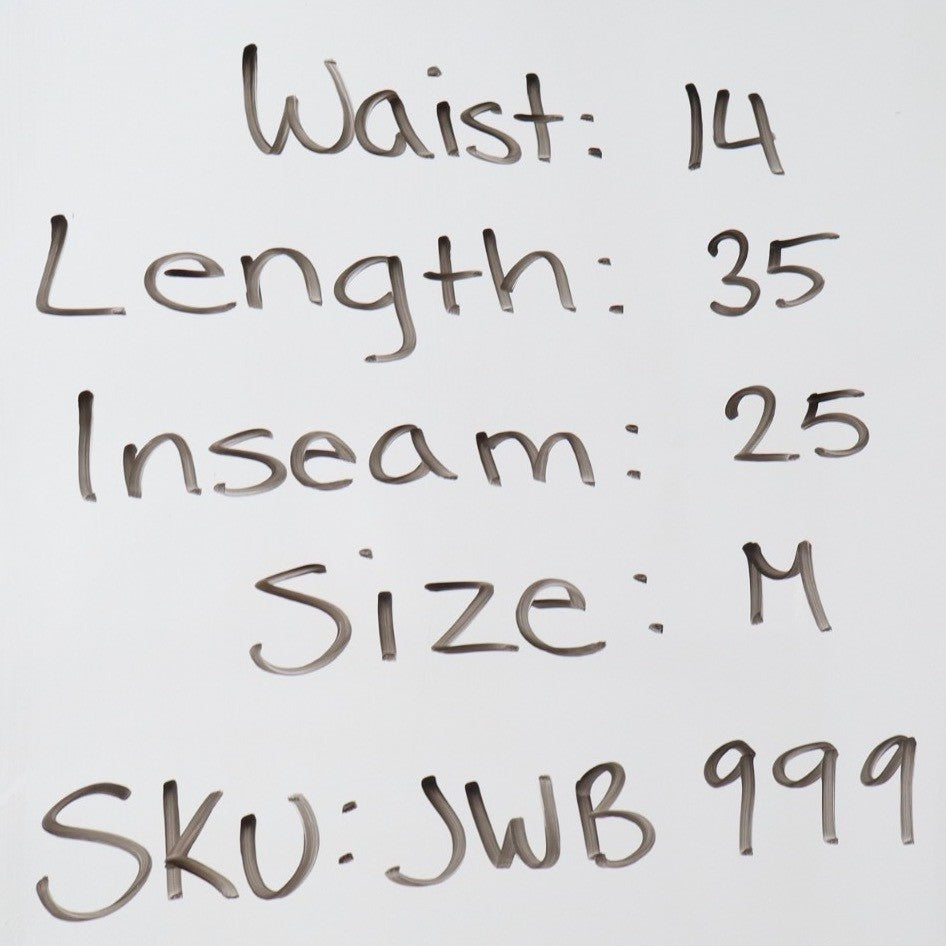 Waist: 14
Length: 35
Inseam: 25
Size: M
SKU: JWB 999